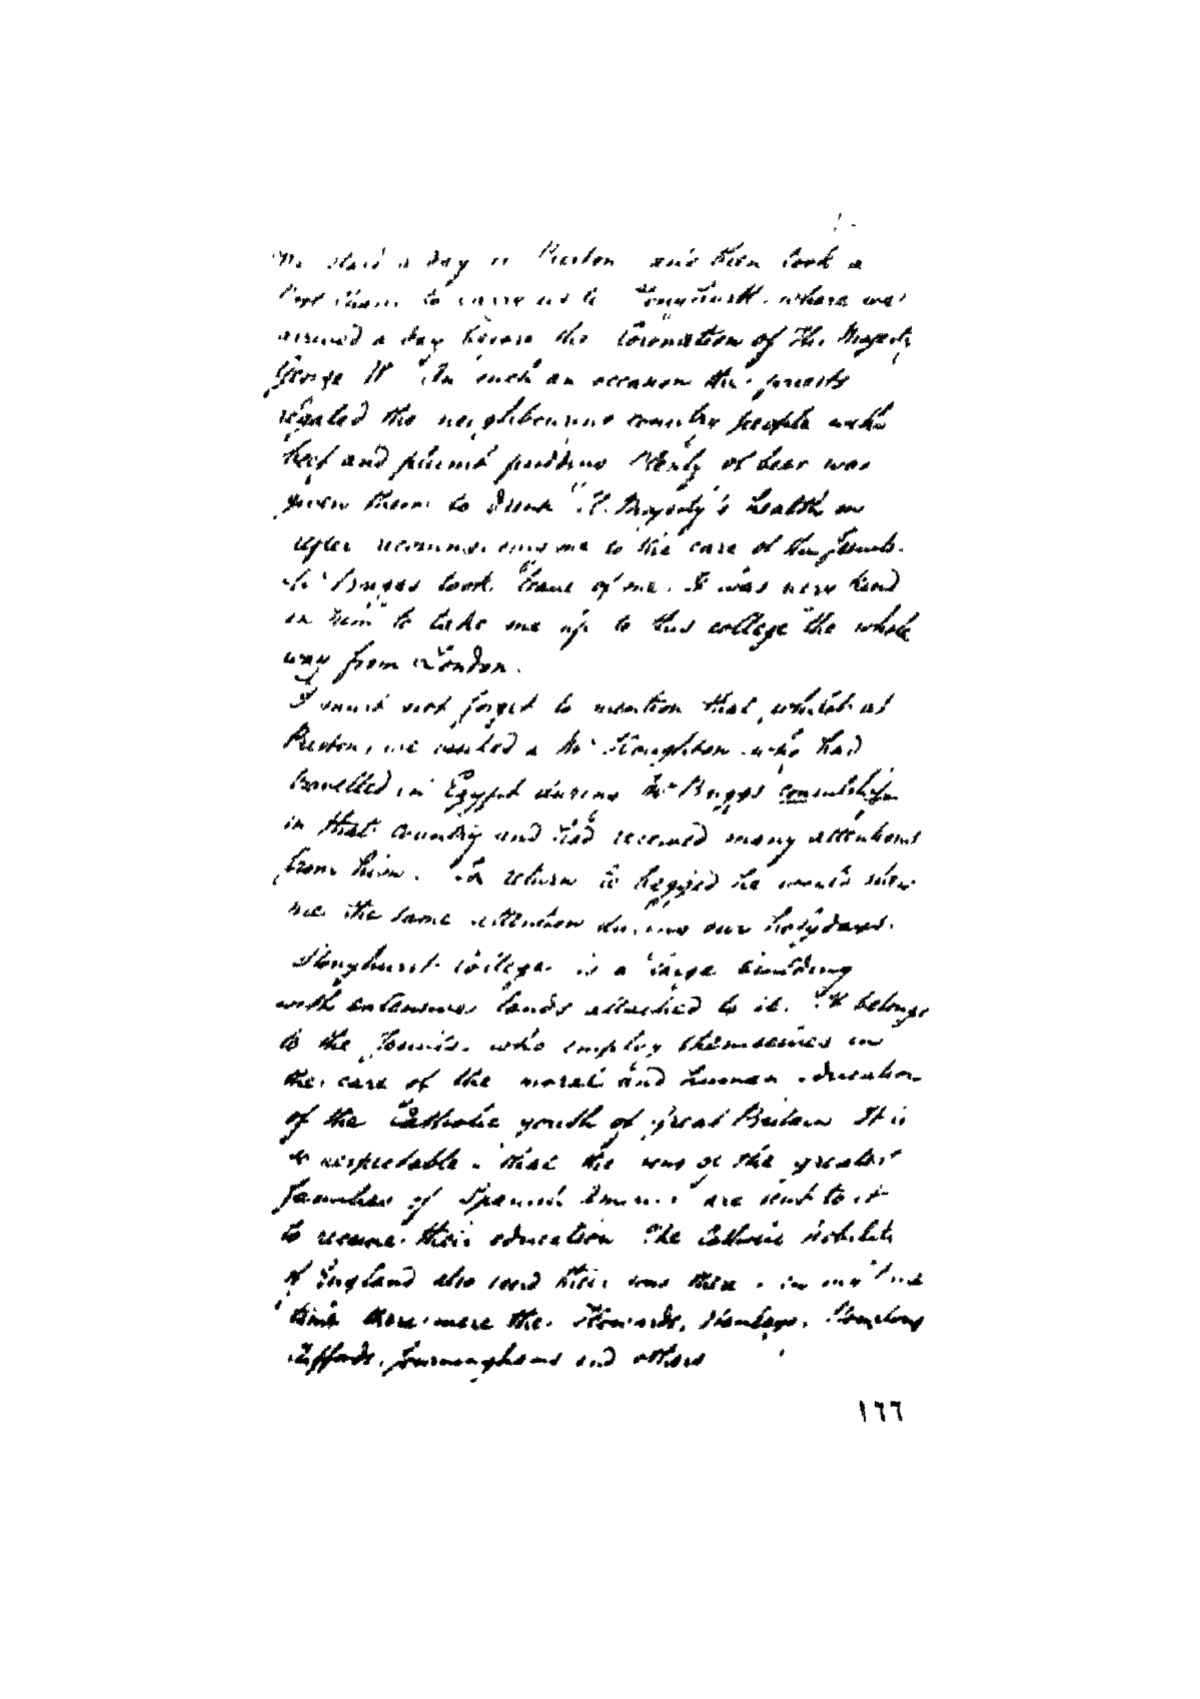 We staid a day at Preston and then took a
Post Chaise to carry us to Stonyhurst where we
arrived a day before the Coronation of His Majesty
George IV In such an occasion the priests
regaled the neighbouring country people with
beef and plumb pudding Plenty of beer was
given them to drink H. Majesty's health in
After recommending me to the care of the Jesuits.
Mr Briggs took leave of me. It was very kind
in him to take me up to this college the whole
way from London.
I must not forget to mention that whilst at
Preston, we visited a Mr Houghton who had
travelled in Egypt during Mr Briggs' consulship
in that country and had received many attentions
from him. In return he begged he would shew
me the same attention during our holydays.
Stonyhurst College is a large building
with extensive lands attached to it. It belongs
to the Jesuits who employ themselves in
the care of the moral and human education
of the Catholic youth of Great Britain It is
so respectable that the sons of the greatest
families of Spanish America are sent to it
to receive their education The Catholic Nobility
of England also send their sons there in my
time there were the Howards,
Cliffords, Jerninghams and others
١٦٦